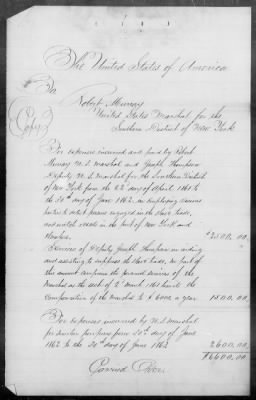 The United States of America
To
Robert Murray
United States Marshal for the
Southern District of New York
(Copy)
For expenses incurred and paid by Robert
Murray U.S. Marshal and Joseph Thompson
Deputy U.S. Marshal for the Southern District
of New York from the 22d day of April 1861 to
the 30th day of June 1862 in employing
to detect persons engaged in the slave trade,
and vessels in the port of New York and
$2500.00
Services of Deputy Joseph Thompson in aiding
and assisting to suppress the slave trade, no part of
this amount comprises the personal services of the
Marshal as the act of 2d March 1861 limits the
compensation of the Marshal to $6000 a year
1500.00
For expenses incurred by U.S. Marshal
for similar purposes from 30th day of June
1862 to the 30th day of June 1863
2600.00
$6600.00
Carried Over